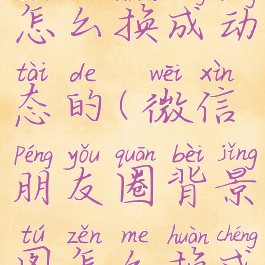 怎么换成动
tài de wēi xìn
态的(微信
Péng yǒu quān bèi jǐng
朋友圈背景
tú zěn me huàn chéng
图怎么换成